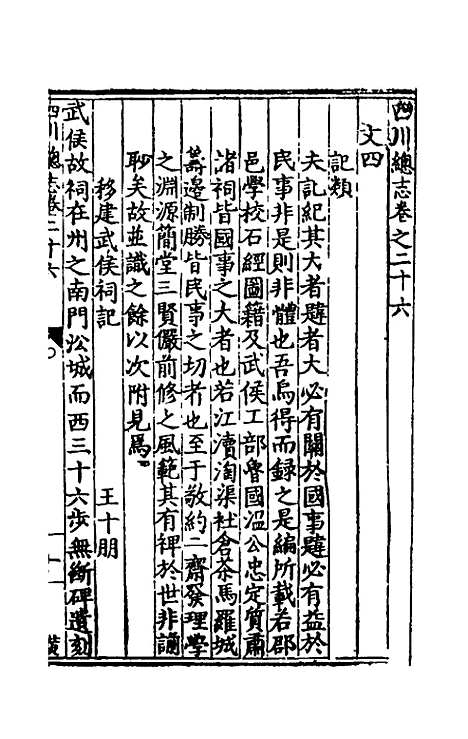 四川總志卷之二十六
文四
記類
夫記紀其大者韙者大必有關於國事韙必有益於
民事非是則非體也吾烏得而録之是編所載若郡
邑學校石經圖籍及武侯工部魯國溫公忠定質肅
諸祠皆國事之大者也若江瀆淘渠社倉茶馬羅城
籌邊制勝皆民事之切者也至于敬約二齋發理學
之淵源簡堂三賢儼前修之風範其有裨於世非謭
眇矣故並識之餘以次附見焉
移建武侯祠記
王十朋
武侯故祠在州之南門㳂城而西三十六步無斷碑遺刻
四川總志卷二十六